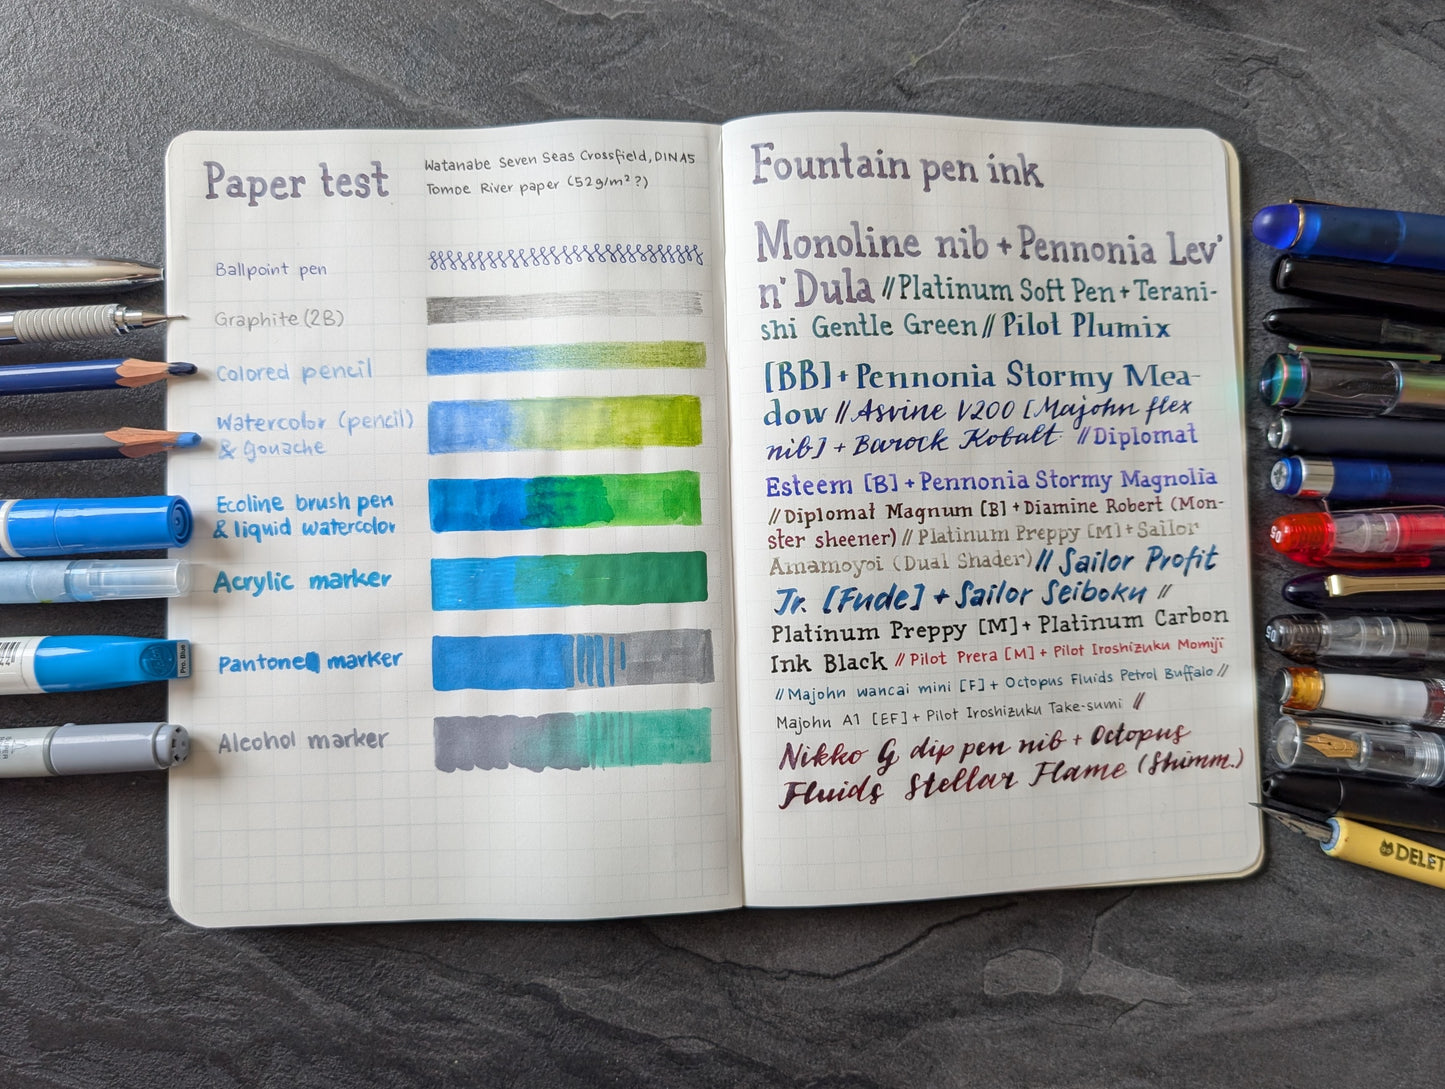 Paper test
Watanabe Seven Seas Crossfield, DIN A5
Tomoe River paper (52g/m²?)
Ballpoint pen
Graphite (2B)
Colored pencil
Watercolor (pencil)
& gouache
Ecoline brush pen
& liquid watercolor
Acrylic marker
Pantone marker
Alcohol marker
Fountain pen ink
Monoline nib + Pennonia Lev'
n' Dula // Platinum Soft Pen + Terani-
shi Gentle Green // Pilot Plumix
[BB] + Pennonia Stormy Mea-
dow // Asvine V200 [Majohn flex
nib] + Barock Kobalt // Diplomat
Esteem [B] + Pennonia Stormy Magnolia
// Diplomat Magnum [B] + Diamine Robert (Mon-
ster sheener) // Platinum Preppy [M] + Sailor
Amamoyoi (Dual Shader) // Sailor Profit
Jr. [Fude] + Sailor Seiboku //
Platinum Preppy [M] + Platinum Carbon
Ink Black // Pilot Prera [M] + Pilot Iroshizuku Momiji
// Majohn wancai mini [F] + Octopus Fluids Petrol Buffalo //
Majohn A1 [EF] + Pilot Iroshizuku Take-sumi //
Nikko G dip pen nib + Octopus
Fluids Stellar Flame (Shimm.)
Pro. Blue
05
05
DELET